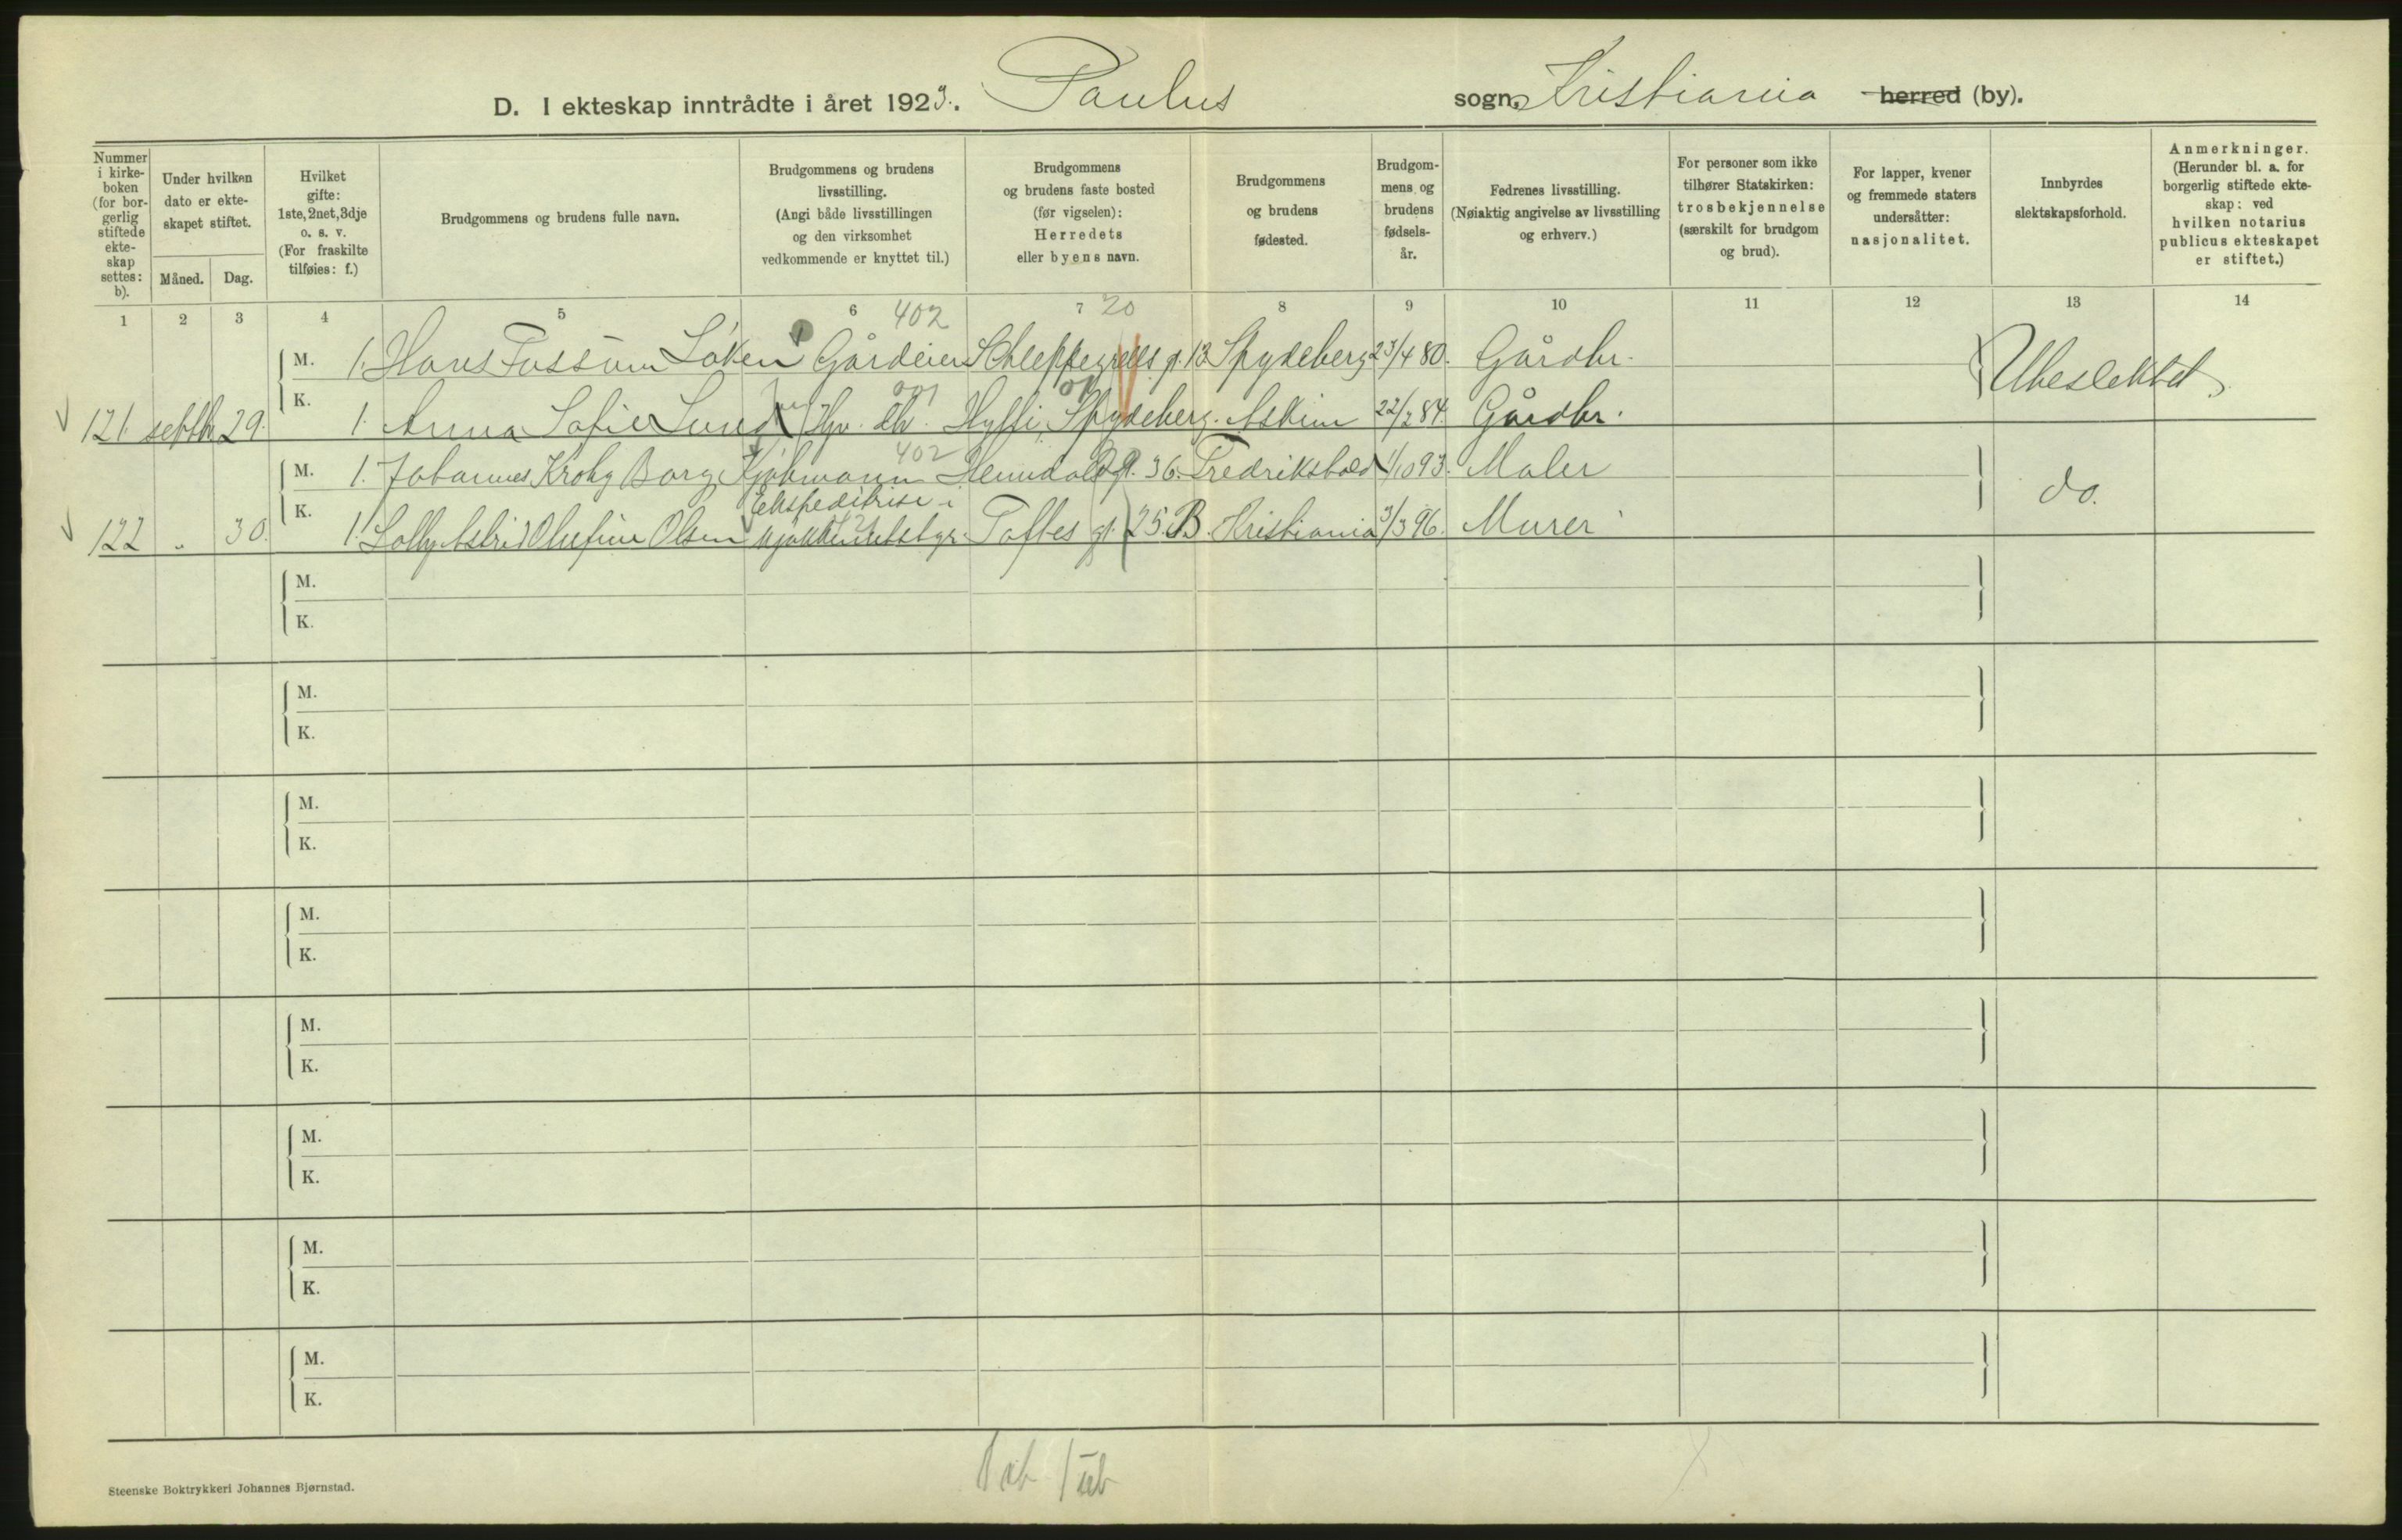 D. I ekteskap inntrådte i året 1923. Paulus sogn, Kristiania herred (by).
Nummer i kirkeboken (for borgerlig stiftede ekteskap settes: b).
Under hvilken dato er ekteskapet stiftet.
Måned. Dag.
Hvilket gifte: 1ste, 2net, 3dje o. s. v. (For fraskilte tilføies: f.)
Brudgommens og brudens fulle navn.
Brudgommens og brudens livsstilling. (Angi både livsstillingen og den virksomhet vedkommende er knyttet til.)
Brudgommens og brudens faste bosted (før vigselen): Herredets eller byens navn.
Brudgommens og brudens fødested.
Brudgommens og brudens fødselsår.
Fedrenes livsstilling. (Nøiaktig angivelse av livsstilling og erhverv.)
For personer som ikke tilhører Statskirken: trosbekjennelse (særskilt for brudgom og brud).
For lapper, kvener og fremmede staters undersåtter: nasjonalitet.
Innbyrdes slektskapsforhold.
Anmerkninger. (Herunder bl. a. for borgerlig stiftede ekteskap: ved hvilken notarius publicus ekteskapet er stiftet.)
1 2 3 4 5 6 7 8 9 10 11 12 13 14
402 20
M. 1. Hans Fossum Løken Gårdeier Schleppegrells gt. 13 Spydeberg 23/4 80. Gårdbr. Ubeslektet
121. septbr. 29. K. 1. Anna Sofie Lund Spydeberg. Askim 22/2 84. Gårdbr.
402
M. 1. Johannes Krohg Borg Kjøbmann 36. Fredrikshald 1/10 93. Maler do.
Ekspeditrise i
122 " 30. K. 1. Lolly Astrid Olufine Olsen Toftes gt. 25. B. Kristiania 3/3 96. Murer
M.
K.
M.
K.
M.
K.
M.
K.
M.
K.
M.
K.
M.
K.
M.
K.
Steenske Boktrykkeri Johannes Bjørnstad.